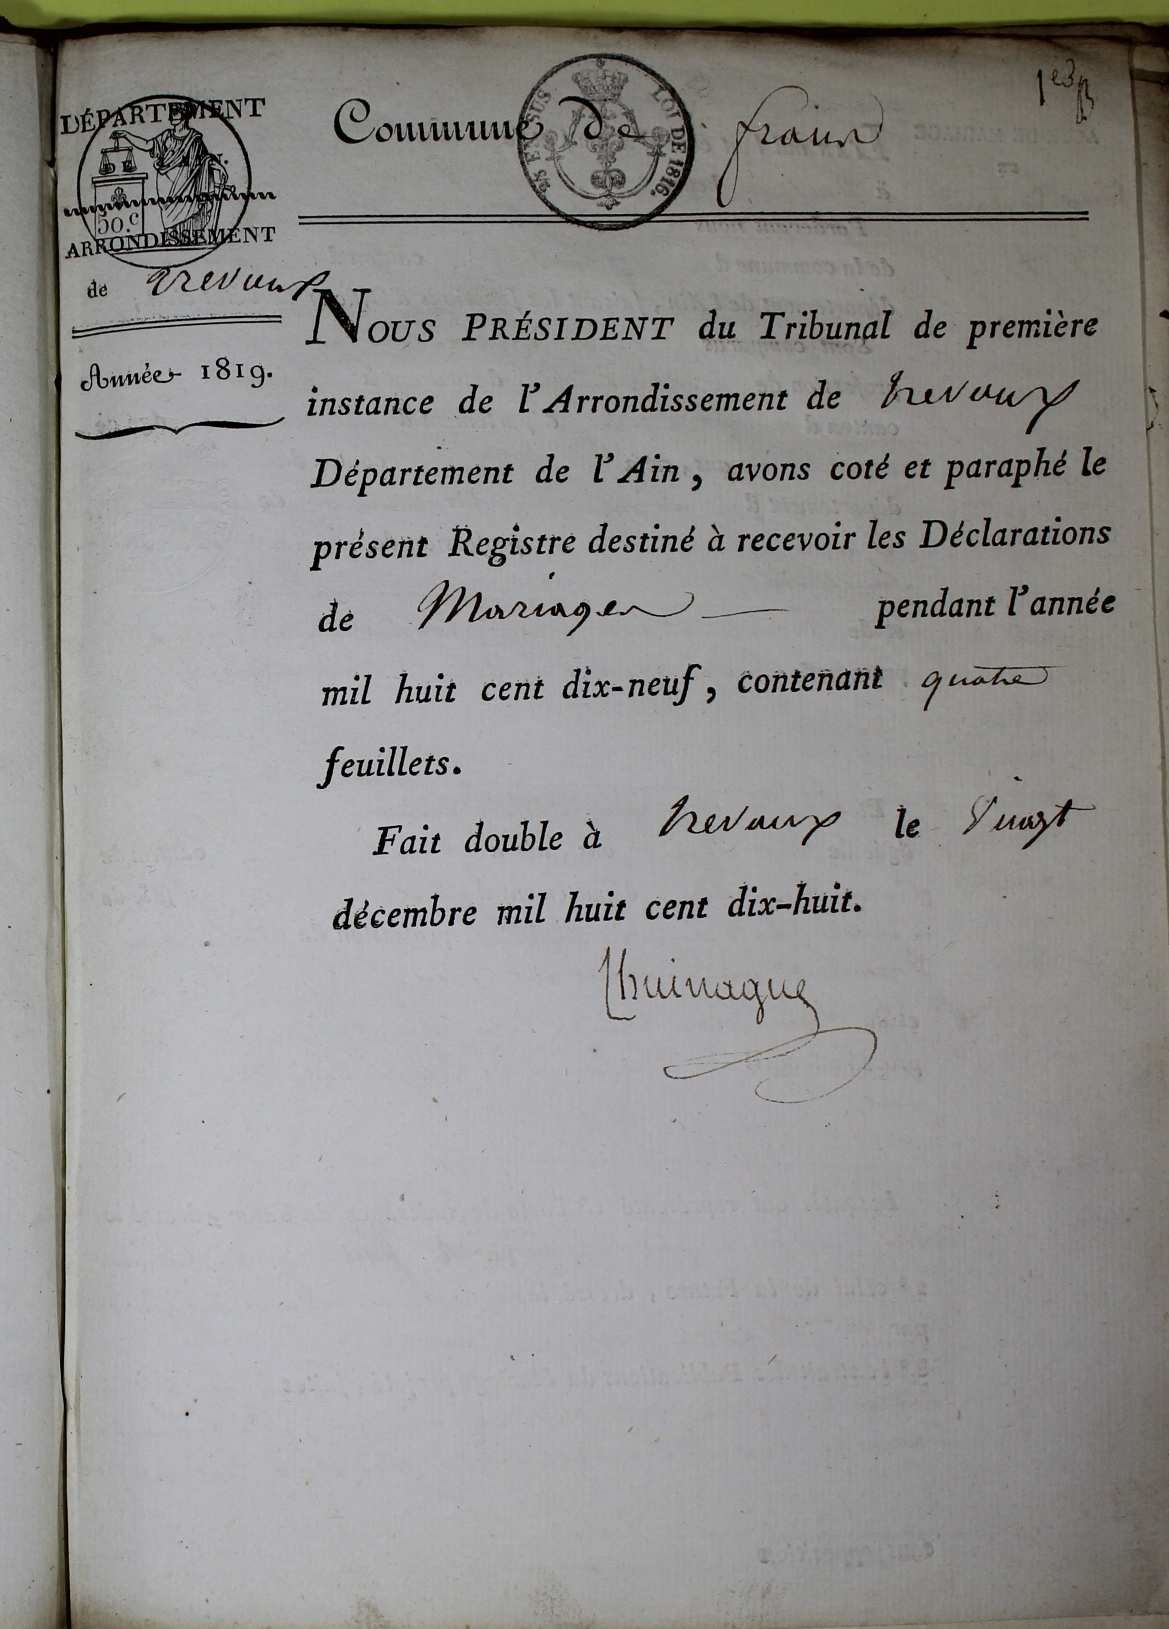 1er
DÉPARTEMENT
DE L'AIN.
50.c
ARRONDISSEMENT
de Trevoux
Année 1819.
Commune de frans
2/5 EN SUS LOI DE 1816.
NOUS PRÉSIDENT du Tribunal de première
instance de l'Arrondissement de trevoux
Département de l'Ain, avons coté et paraphé le
présent Registre destiné à recevoir les Déclarations
de Mariages — pendant l'année
mil huit cent dix-neuf, contenant quatre
feuillets.
Fait double à trevoux le Vingt
décembre mil huit cent dix-huit.